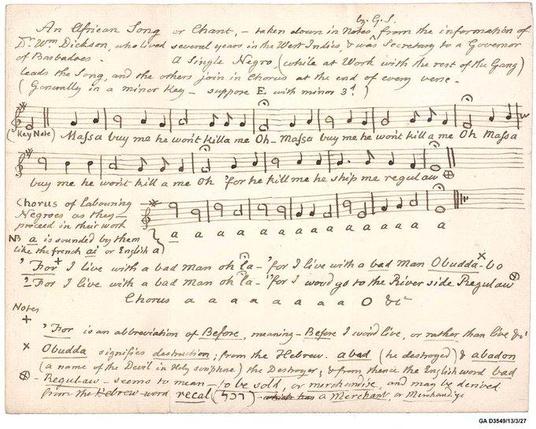 An African Song or Chant, – taken down in Notes by G.S. from the information of
Dr. Wm. Dickson, who lived several years in the West Indies & was Secretary to a Governor
of Barbadoes. A Single Negro (while at Work with the rest of the Gang)
leads the Song, and the others join in Chorus at the end of every verse –
(Generally in a minor Key – suppose E with minor 3d.)
(Key Note) Massa buy me he won't killa me Oh – Massa buy me he won't kill a me Oh Massa
buy me he won't kill a me Oh 'for he kill me he ship me regulaw ⊗
Chorus of labouring
Negroes as they
proceed in their work
a a a a a a a a a
NB a is sounded by them
like the french ai or English a
'For+ I live with a bad man oh la – 'for I live with a bad man Obudda-bo ×
'For I live with a bad man oh la – 'for I wo'd go to the River side Regulaw ⊗
Chorus a a a a a a a O &c
Notes
+ 'For is an abbreviation of Before, meaning – Before I wo'd live, or rather than live &c
× Obudda signifies destruction; from the Hebrew. abad (he destroyed) & abadon
(a name of the Devil in Holy scripture) the Destroyer; & from thence the English word bad
⊗ – Regulaw – seems to mean – to be sold, or merchandise, and may be derived
from the Hebrew word recal (רכל) a Merchant, or Merchandize
GA D3549/13/3/27